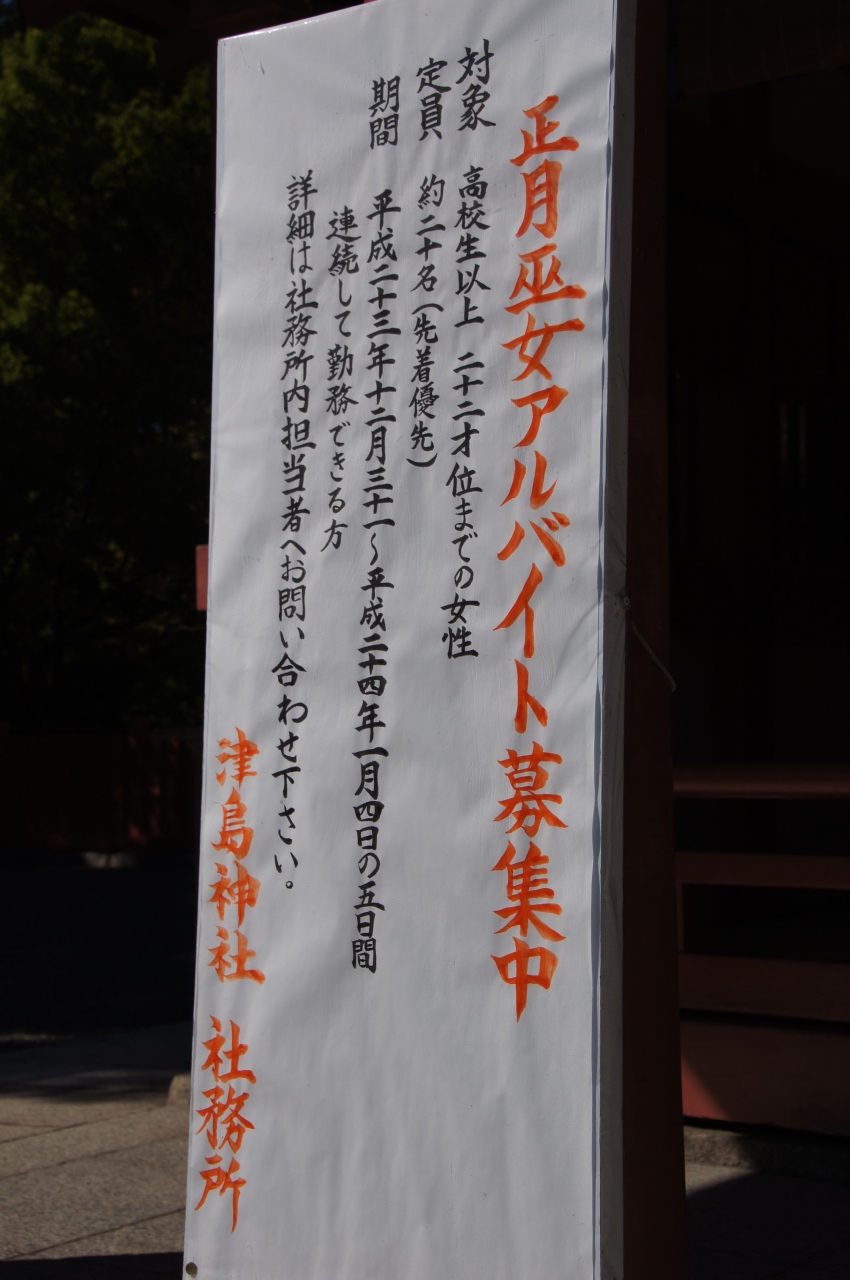 正月巫女アルバイト募集中
対象 高校生以上 二十二才位までの女性
定員 約二十名(先着優先)
期間 平成二十三年十二月三十一~平成二十四年一月四日の五日間
連続して勤務できる方
詳細は社務所内担当者へお問い合わせ下さい。
津島神社 社務所